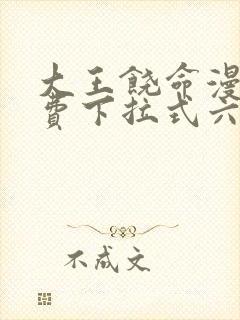 大王饶命漫
费下拉式六
不成文